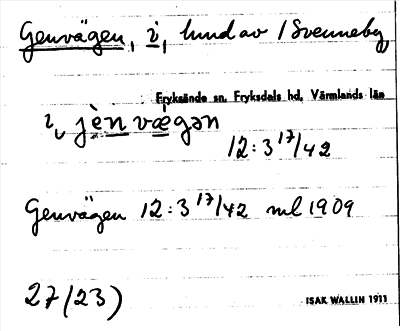 Genvägen, i, lund av /Svenneby
Fryksände sn. Fryksdals hd, Värmlands län
i, jènvægən
12:3 17/42
Genvägen 12:3 17/42 ml 1909
27/(23)
ISAK WALLIN 1911